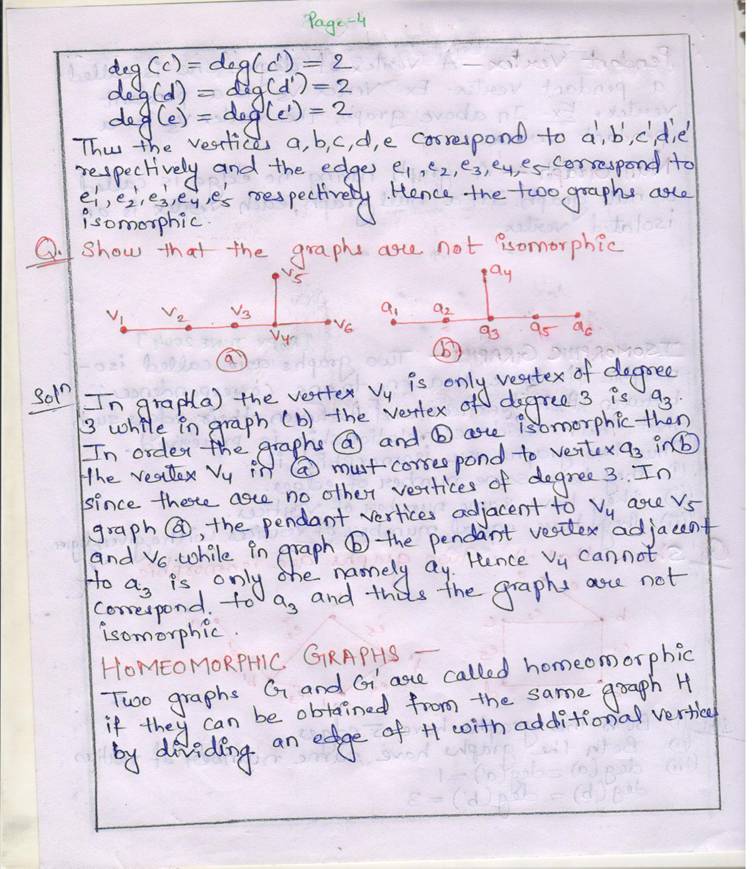 Page-4
deg(c) = deg(c') = 2
deg(d) = deg(d') = 2
deg(e) = deg(e') = 2
Thus the vertices a,b,c,d,e correspond to a',b',c',d',e'
respectively and the edges e1, e2, e3, e4, e5 correspond to
e1', e2', e3', e4', e5' respectively. Hence the two graphs are
isomorphic.
Q. Show that the graphs are not isomorphic
v5 a4
v1 v2 v3 v4 v6 a1 a2 a3 a5 a6
(a) (b)
Soln In graph(a) the vertex v4 is only vertex of degree
3 while in graph (b) the vertex of degree 3 is a3.
In order the graphs (a) and (b) are isomorphic then
the vertex v4 in (a) must correspond to vertex a3 in (b)
since there are no other vertices of degree 3. In
graph (a), the pendant vertices adjacent to v4 are v5
and v6 while in graph (b) the pendant vertex adjacent
to a3 is only one namely a4. Hence v4 cannot
correspond. to a3 and thus the graphs are not
isomorphic.
HOMEOMORPHIC GRAPHS -
Two graphs G and G' are called homeomorphic
if they can be obtained from the same graph H
by dividing an edge of H with additional vertices